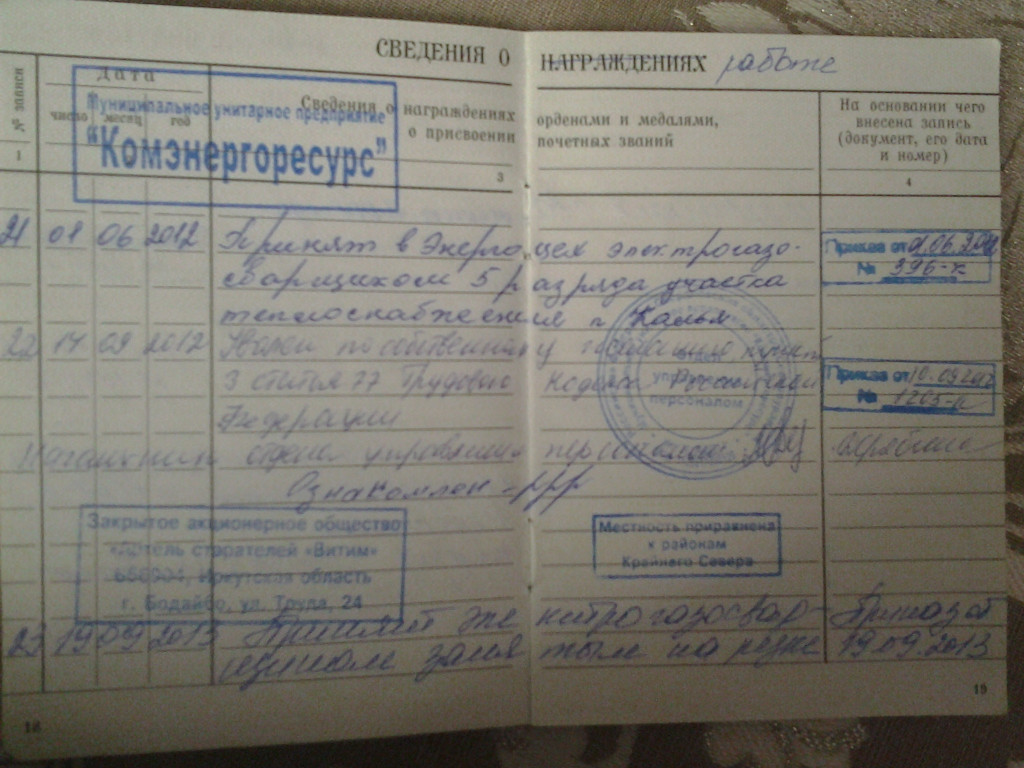 СВЕДЕНИЯ О НАГРАЖДЕНИЯХ работе
№ записи
Дата
число месяц год
Сведения о награждениях орденами и медалями,
о присвоении почетных званий
На основании чего
внесена запись
(документ, его дата
и номер)
1
3
4
Муниципальное унитарное предприятие
"Комэнергоресурс"
21 01 06 2012 Принят в Энергоцех электрогазо-
сварщиком 5 разряда участка
теплоснабжения п. Калья
Приказ от 01.06.2012
№ 396-к
22 14 09 2012 Уволен по собственному желанию пункт
3 статья 77 Трудового Кодекса Российской
Федерации
Приказ от 10.09.2012
№ 1205-к
управления
персоналом
Начальник отдела управления персоналом
Ознакомлен
Закрытое акционерное общество
«Артель старателей «Витим»
Иркутская область
г. Бодайбо, ул. Труда, 24
Местность приравнена
к районам
Крайнего Севера
23 19 09 2013 Принят электрогазосвар-
щиком занятым на резке
Приказ
19.09.2013
18
19